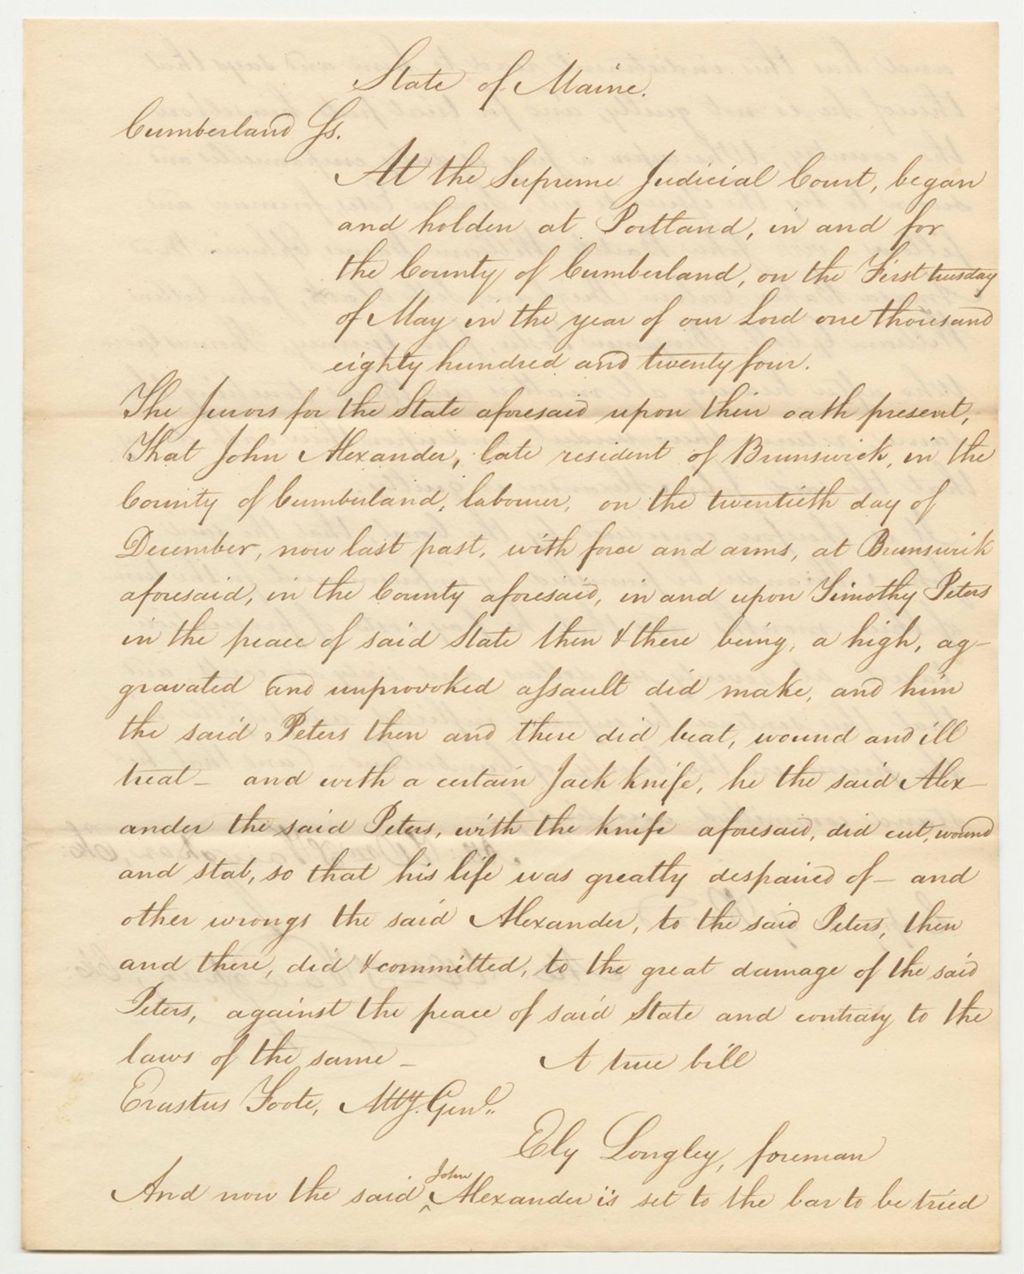 State of Maine.
Cumberland Ss.
At the Supreme Judicial Court, began
and holden at Portland, in and for
the County of Cumberland, on the First tuesday
of May in the year of our Lord one thousand
eighty hundred and twenty four.
The Jurors for the State aforesaid upon their oath present,
That John Alexander, late resident of Brunswick, in the
County of Cumberland, labourer, on the twentieth day of
December, now last past, with force and arms, at Brunswick
aforesaid, in the County aforesaid, in and upon Timothy Peters
in the peace of said State then & there being, a high, ag-
gravated and unprovoked assault did make, and him
the said Peters then and there did beat, wound and ill
treat - and with a certain Jack knife, he the said Alex-
ander the said Peters, with the knife aforesaid, did cut, wound
and stab, so that his life was greatly despaired of - and
other wrongs the said Alexander, to the said Peters, then
and there, did & committed, to the great damage of the said
Peters, against the peace of said State and contrary to the
laws of the same - A true bill
Erastus Foote, Atty. Genl.
Ely Longley, foreman
And now the said John Alexander is set to the bar to be tried